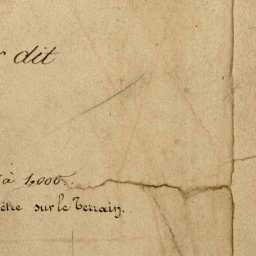 dit
à 1,000.
sur le Terrain.